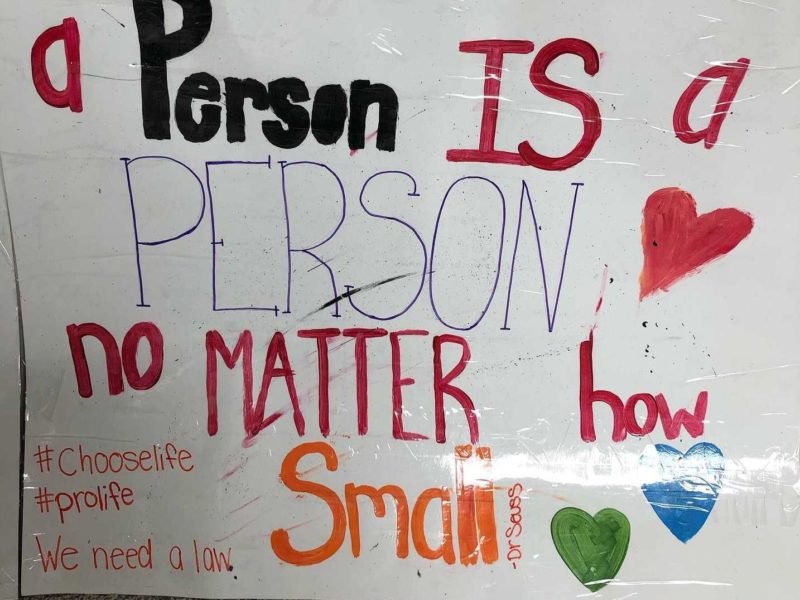 a Person IS a
PERSON
no MATTER how
Small
-Dr Seuss
#Chooselife
#prolife
We need a law